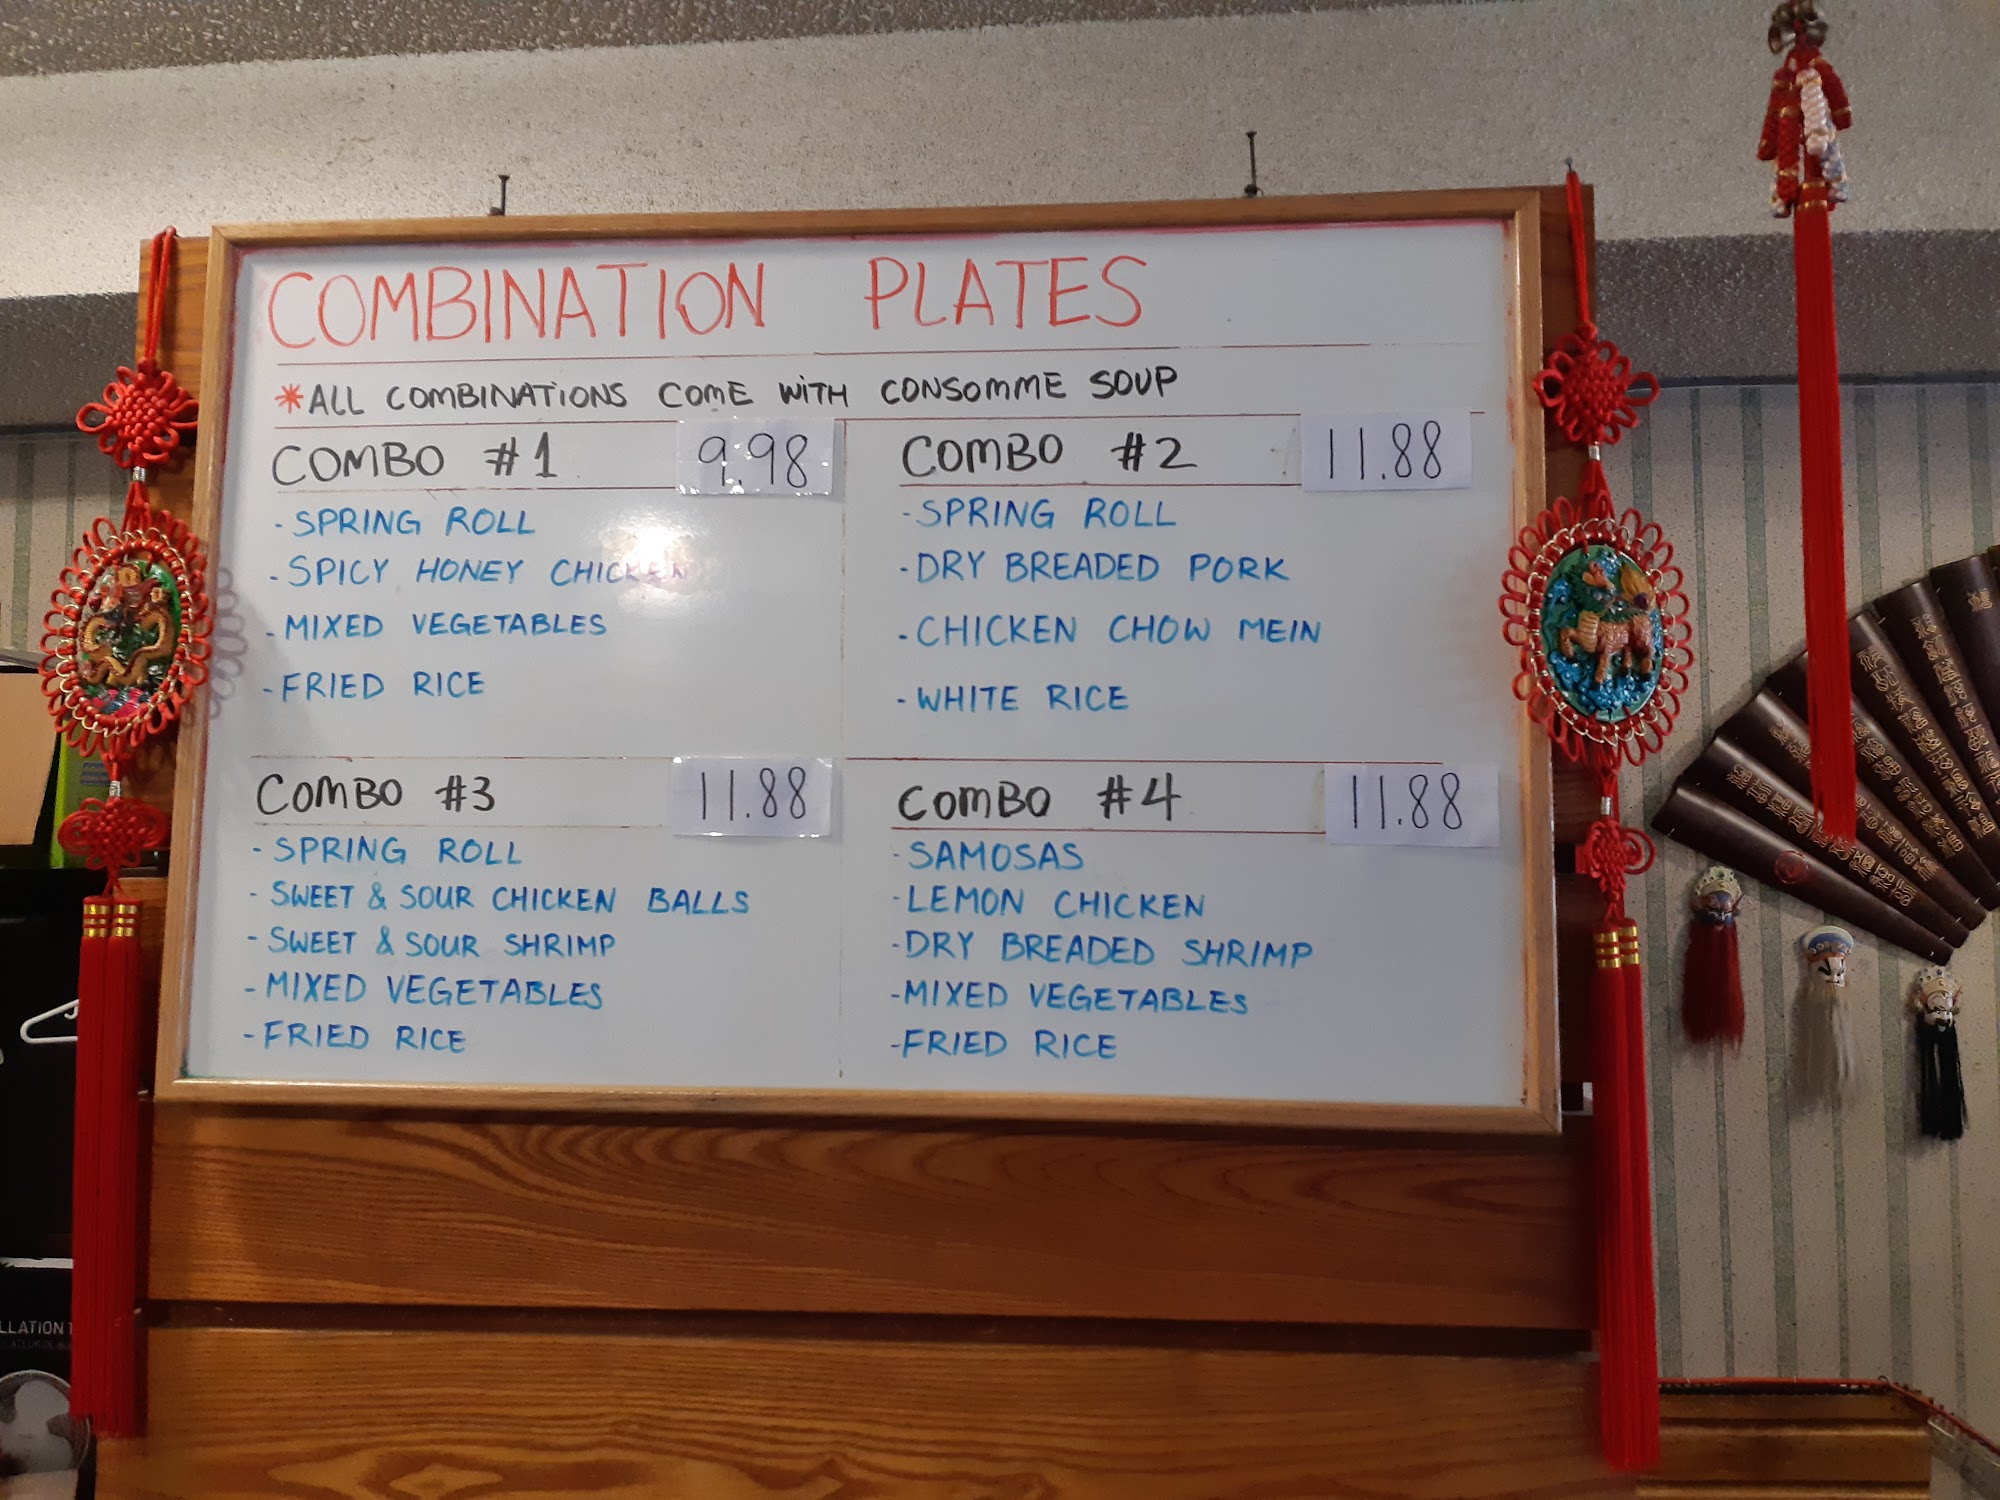 COMBINATION PLATES
*ALL COMBINATIONS COME WITH CONSOMME SOUP
COMBO #1 9.98
- SPRING ROLL
- SPICY HONEY CHICKEN
- MIXED VEGETABLES
- FRIED RICE
COMBO #2 11.88
- SPRING ROLL
- DRY BREADED PORK
- CHICKEN CHOW MEIN
- WHITE RICE
COMBO #3 11.88
- SPRING ROLL
- SWEET & SOUR CHICKEN BALLS
- SWEET & SOUR SHRIMP
- MIXED VEGETABLES
- FRIED RICE
COMBO #4 11.88
- SAMOSAS
- LEMON CHICKEN
- DRY BREADED SHRIMP
- MIXED VEGETABLES
- FRIED RICE